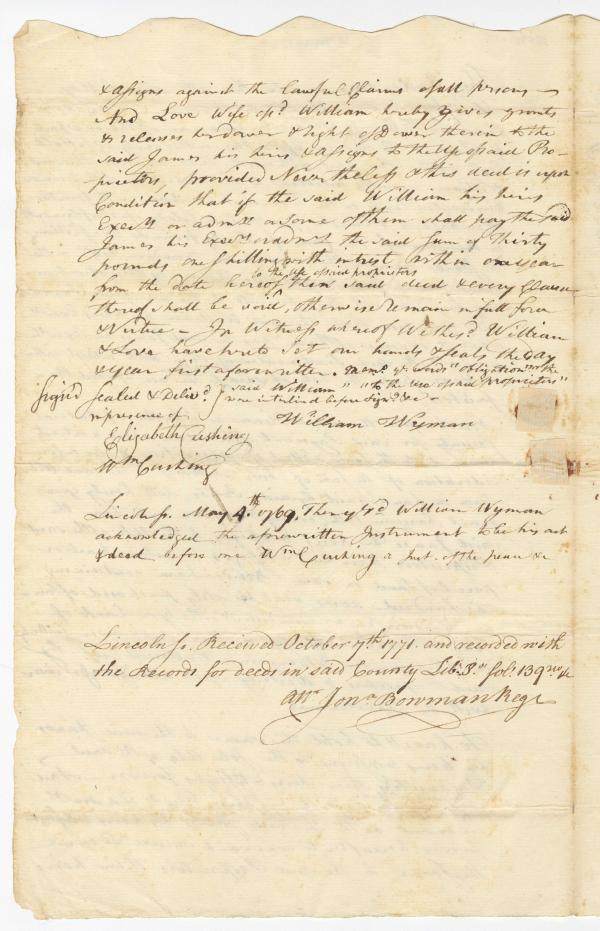 & assigns against the lawful Claims of all persons —
And Love Wife of sd. William hereby gives grants
& releases her dower & right of Dower therein to the
said James his heirs & assigns to the Use of said Pro-
prietors, provided Nevertheless & this deed is upon
Condition that if the said William his heirs
Execrs. or admrs. or some of them shall pay the Said
James his Execrs. or admrs. the said Sum of Thirty
pounds one shilling with intrest within one year
to the use of said proprietors
from the date hereof then said deed & every Clause
thereof shall be void, otherwise remain in full force
& Virtue — In Witness whereof We the sd. William
& Love have hereto set our hands & seals the day
& year first aforewritten. Memo. ye words "obligation" "the
Signed Sealed & Delivd. } said William" "to the use of said proprietors"
in presence of were interlined before Signg. &c —
William Wyman
Elizabeth Cushing
Wm Cushing
Lincoln ss. May 4.th 1769, Then ye sd. William Wyman
acknowledged the aforewritten Instrument to be his act
& deed before me Wm Cushing a Just. of the peace &c
Lincoln ss. Received October 7th. 1771. and recorded with
the Records for deeds in said County Lib: 8.th fol: 139 &c
Attr. Jona. Bowman Regr